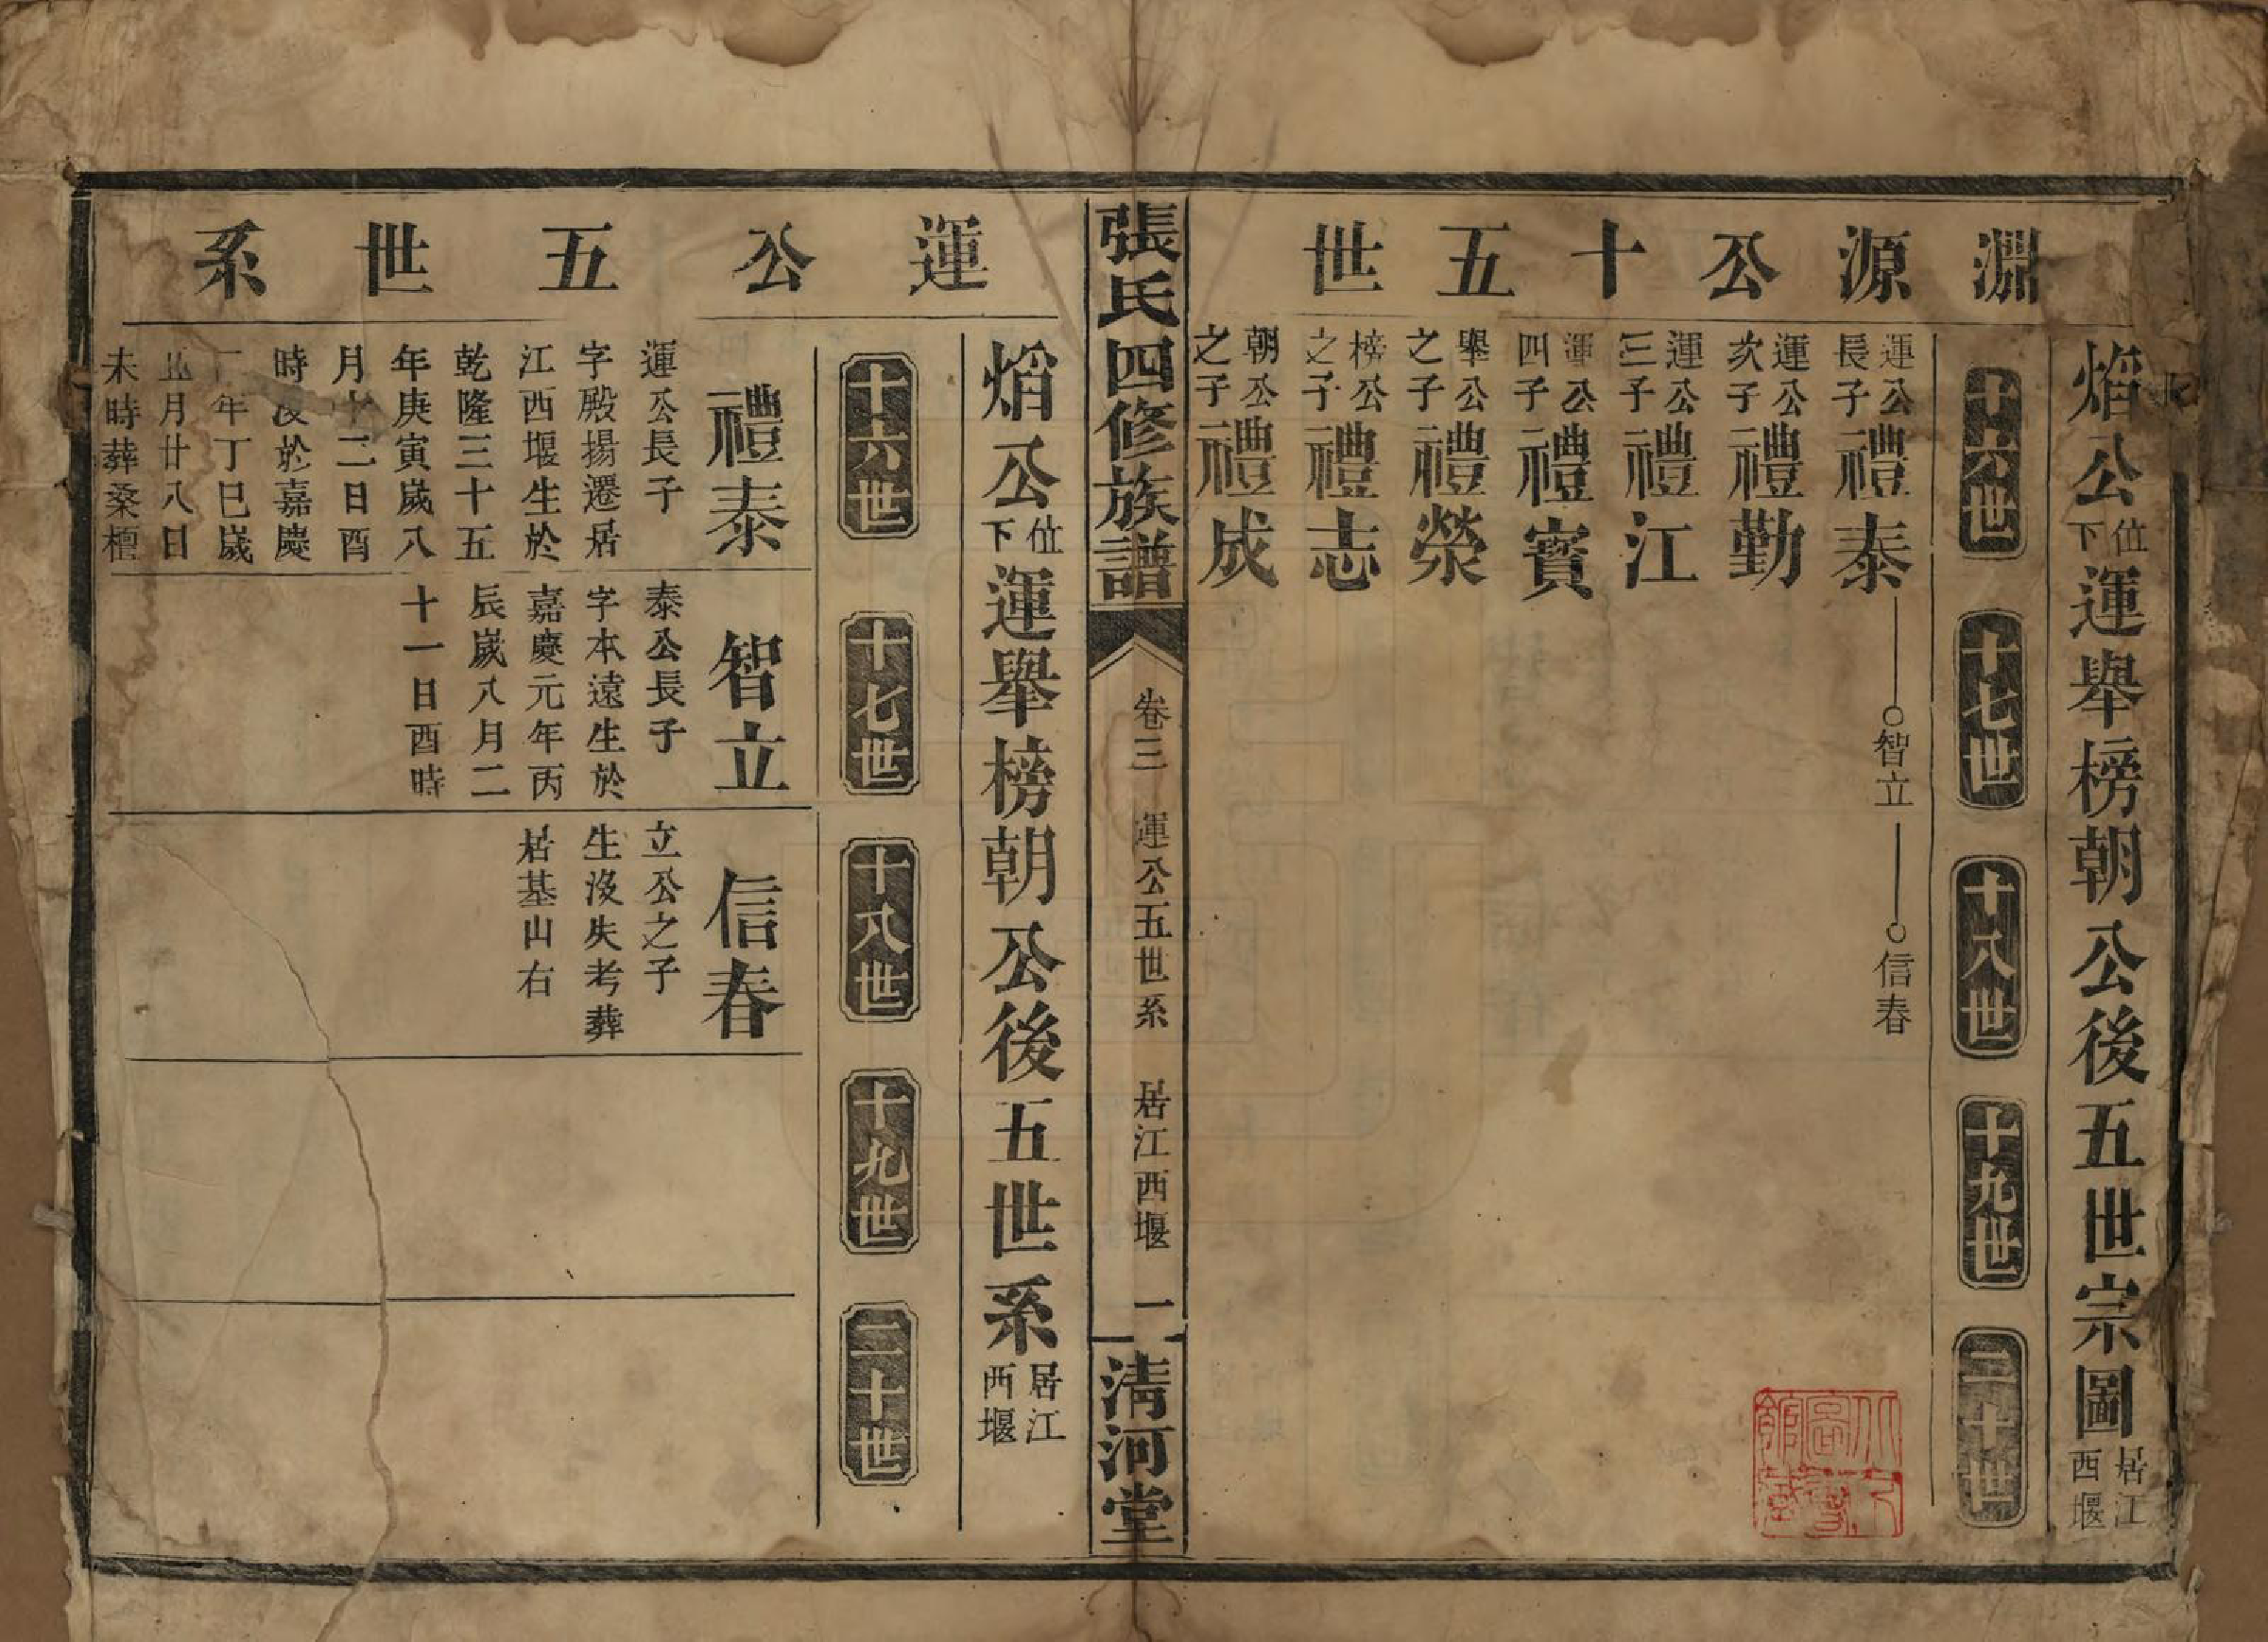 淵源公十五世
焰公位下運舉榜朝公後五世宗圖居江西堰
十六世
十七世
十八世
十九世
二十世
運公長子禮泰
智立
信春
運公次子禮勤
運公三子禮江
運公四子禮賓
舉公之子禮榮
榜公之子禮志
朝公之子禮成
張氏四修族譜
卷三
運公五世系
居江西堰
一
清河堂
運公五世系
焰公位下運舉榜朝公後五世系居江西堰
十六世
十七世
十八世
十九世
二十世
禮泰
運公長子
字殿揚遷居
江西堰生於
乾隆三十五
年庚寅歲八
月十二日酉
時沒於嘉慶
二年丁巳歲
五月廿八日
未時葬桑樹
智立
泰公長子
字本遠生於
嘉慶元年丙
辰歲八月二
十一日酉時
信春
立公之子
生沒失考葬
居基山右